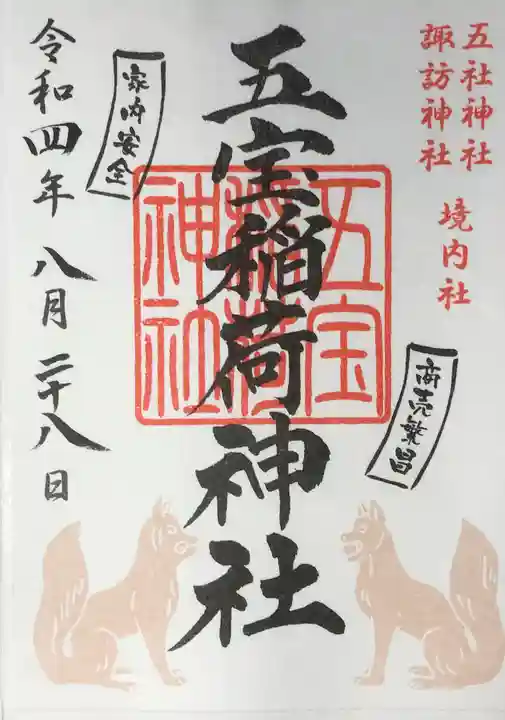 五社神社
諏訪神社
境内社
商売繁昌
五宝稲荷神社
五宝
稲荷
神社
家内安全
令和四年八月二十八日